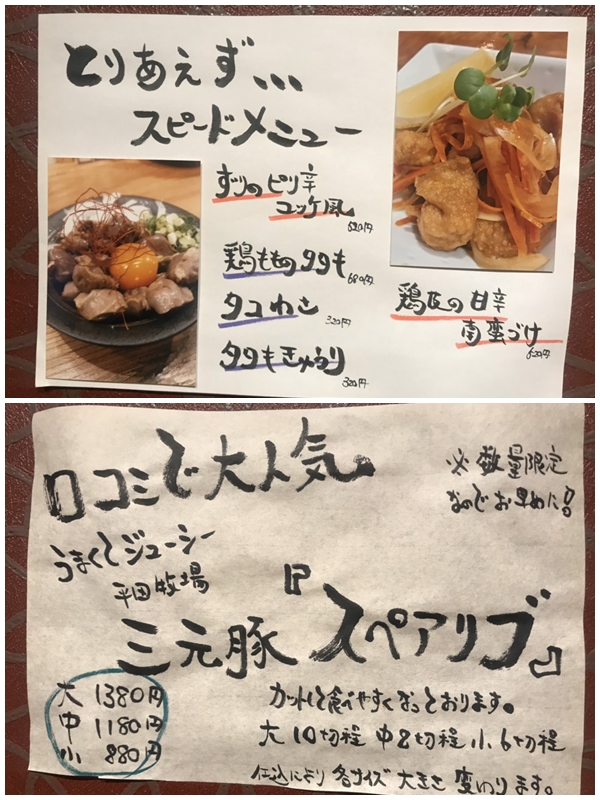 とりあえず、、、
スピードメニュー
ずりのピリ辛
ユッケ風
520円
鶏もものタタキ
680円
タコわさ
320円
タタキきゅうり
320円
鶏皮の甘辛
南蛮づけ
620円
口コミで大人気
※数量限定
なのでお早めに!!
うまくてジューシー
平田牧場
三元豚『スペアリブ』
大 1380円
中 1180円
小 880円
カットして食べやすくなっております。
大10切程 中8切程 小6切程
仕込により各サイズ大きさ変わります。